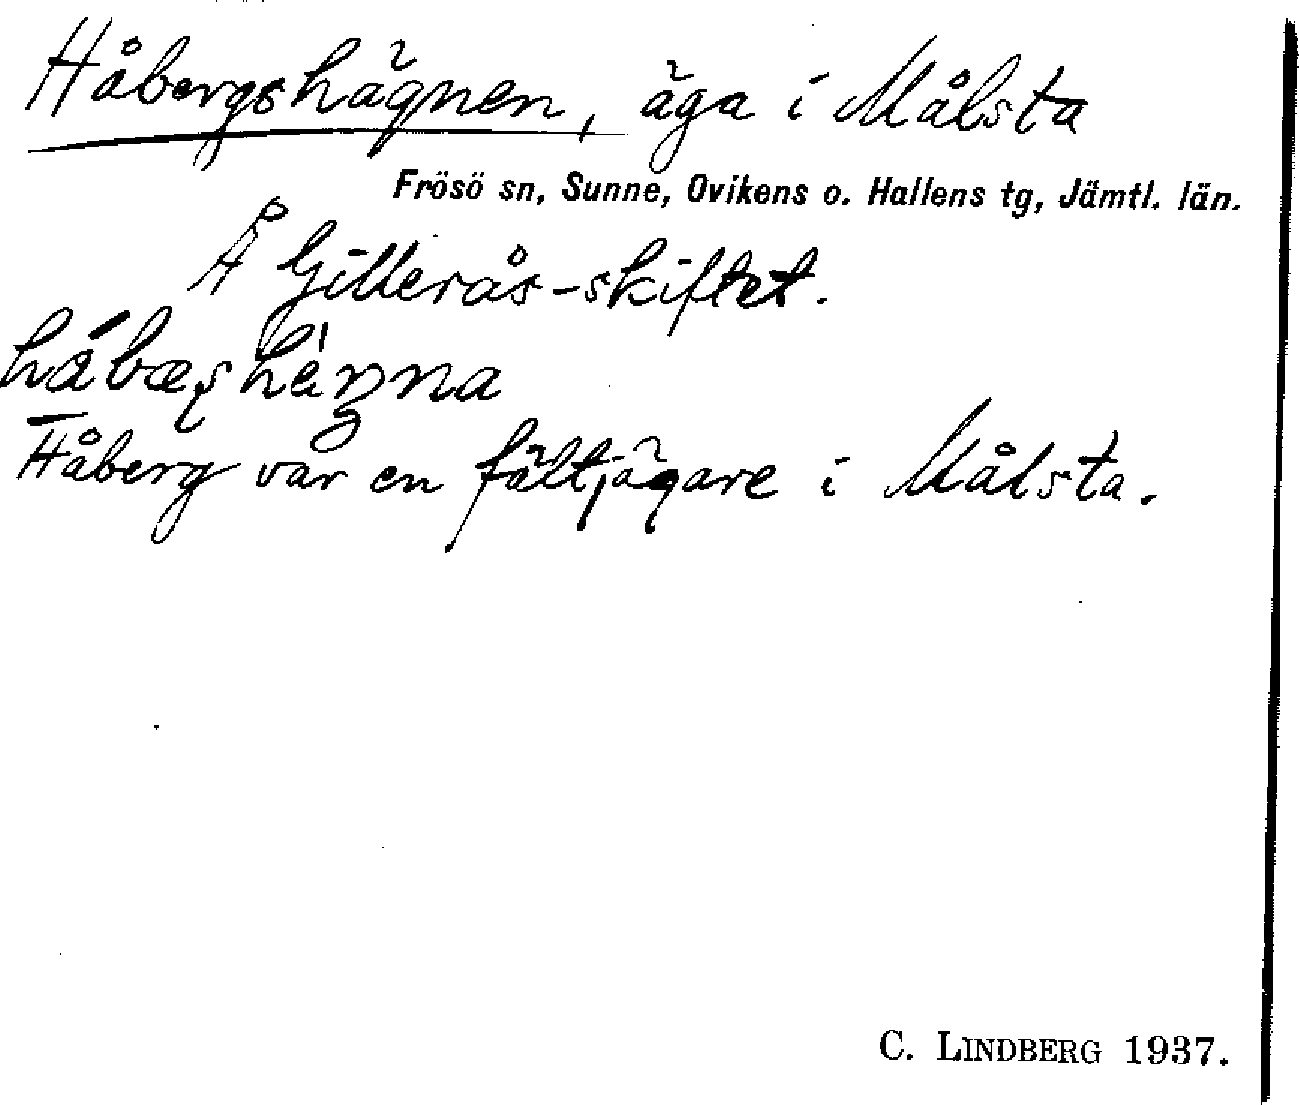 Håbergshägnen, äga i Målsta
Frösö sn, Sunne, Ovikens o. Hallens tg, Jämtl. län.
Å Gillerås-skiftet.
Håberg var en fältjägare i Målsta.
C. LINDBERG 1937.